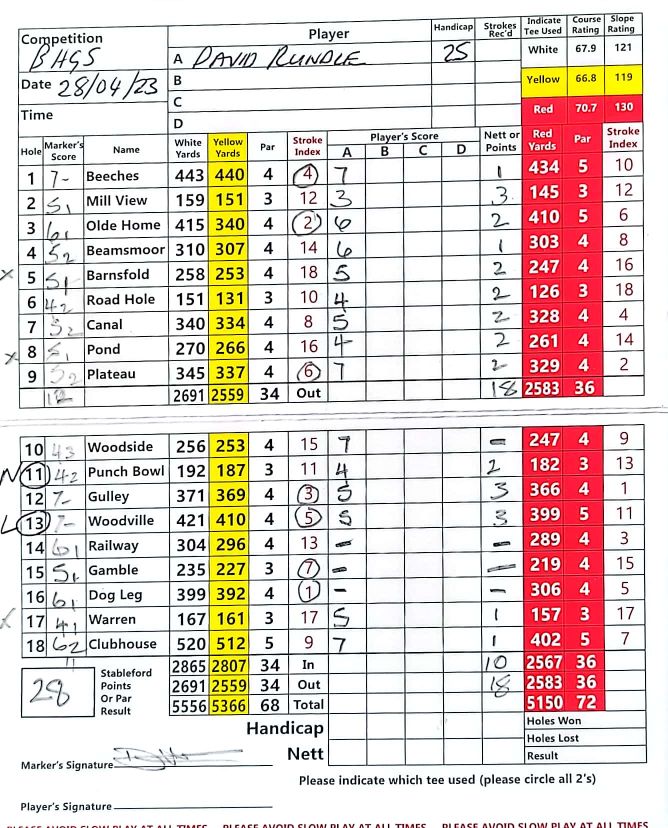 Competition Player Handicap Strokes Rec'd Indicate Tee Used Course Rating Slope Rating
BHGS A DAVID RUNDLE 25 White 67.9 121
Date 28/04/23 B Yellow 66.8 119
Time C Red 70.7 130
D
Hole Marker's Score Name White Yards Yellow Yards Par Stroke Index Player's Score A B C D Nett or Points Red Yards Par Stroke Index
1 7- Beeches 443 440 4 4 7 1 434 5 10
2 5, Mill View 159 151 3 12 3 3 145 3 12
3 6, Olde Home 415 340 4 2 6 2 410 5 6
4 52 Beamsmoor 310 307 4 14 6 1 303 4 8
x 5 51 Barnsfold 258 253 4 18 5 2 247 4 16
6 42 Road Hole 151 131 3 10 4 2 126 3 18
7 52 Canal 340 334 4 8 5 2 328 4 4
x 8 5, Pond 270 266 4 16 4 2 261 4 14
9 52 Plateau 345 337 4 6 7 2 329 4 2
12 2691 2559 34 Out 18 2583 36
10 43 Woodside 256 253 4 15 7 - 247 4 9
N 11 42 Punch Bowl 192 187 3 11 4 2 182 3 13
12 7- Gulley 371 369 4 3 5 3 366 4 1
L 13 7- Woodville 421 410 4 5 5 3 399 5 11
14 61 Railway 304 296 4 13 - - 289 4 3
15 51 Gamble 235 227 3 7 - - 219 4 15
16 61 Dog Leg 399 392 4 1 - - 306 4 5
x 17 41 Warren 167 161 3 17 5 1 157 3 17
18 62 Clubhouse 520 512 5 9 7 1 402 5 7
11 2865 2807 34 In 10 2567 36
28 Stableford Points Or Par Result 2691 2559 34 Out 18 2583 36
5556 5366 68 Total 5150 72
Handicap Holes Won
Holes Lost
Nett Result
Marker's Signature
Please indicate which tee used (please circle all 2's)
Player's Signature
PLEASE AVOID SLOW PLAY AT ALL TIMES PLEASE AVOID SLOW PLAY AT ALL TIMES PLEASE AVOID SLOW PLAY AT ALL TIMES